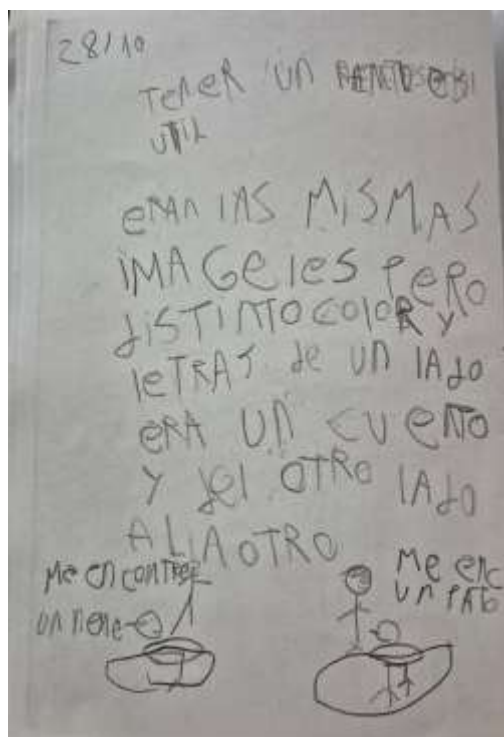 28/10
TENER UN
UTIL
ERAN LAS MISMAS
IMAGELES PERO
DISTINTO COLOR Y
LETRAS DE UN LADO
ERA UN CUENTO
Y DEL OTRO LADO
ALIA OTRO
ME ENCONTRE
UN NENE
ME ENC
UN PATO